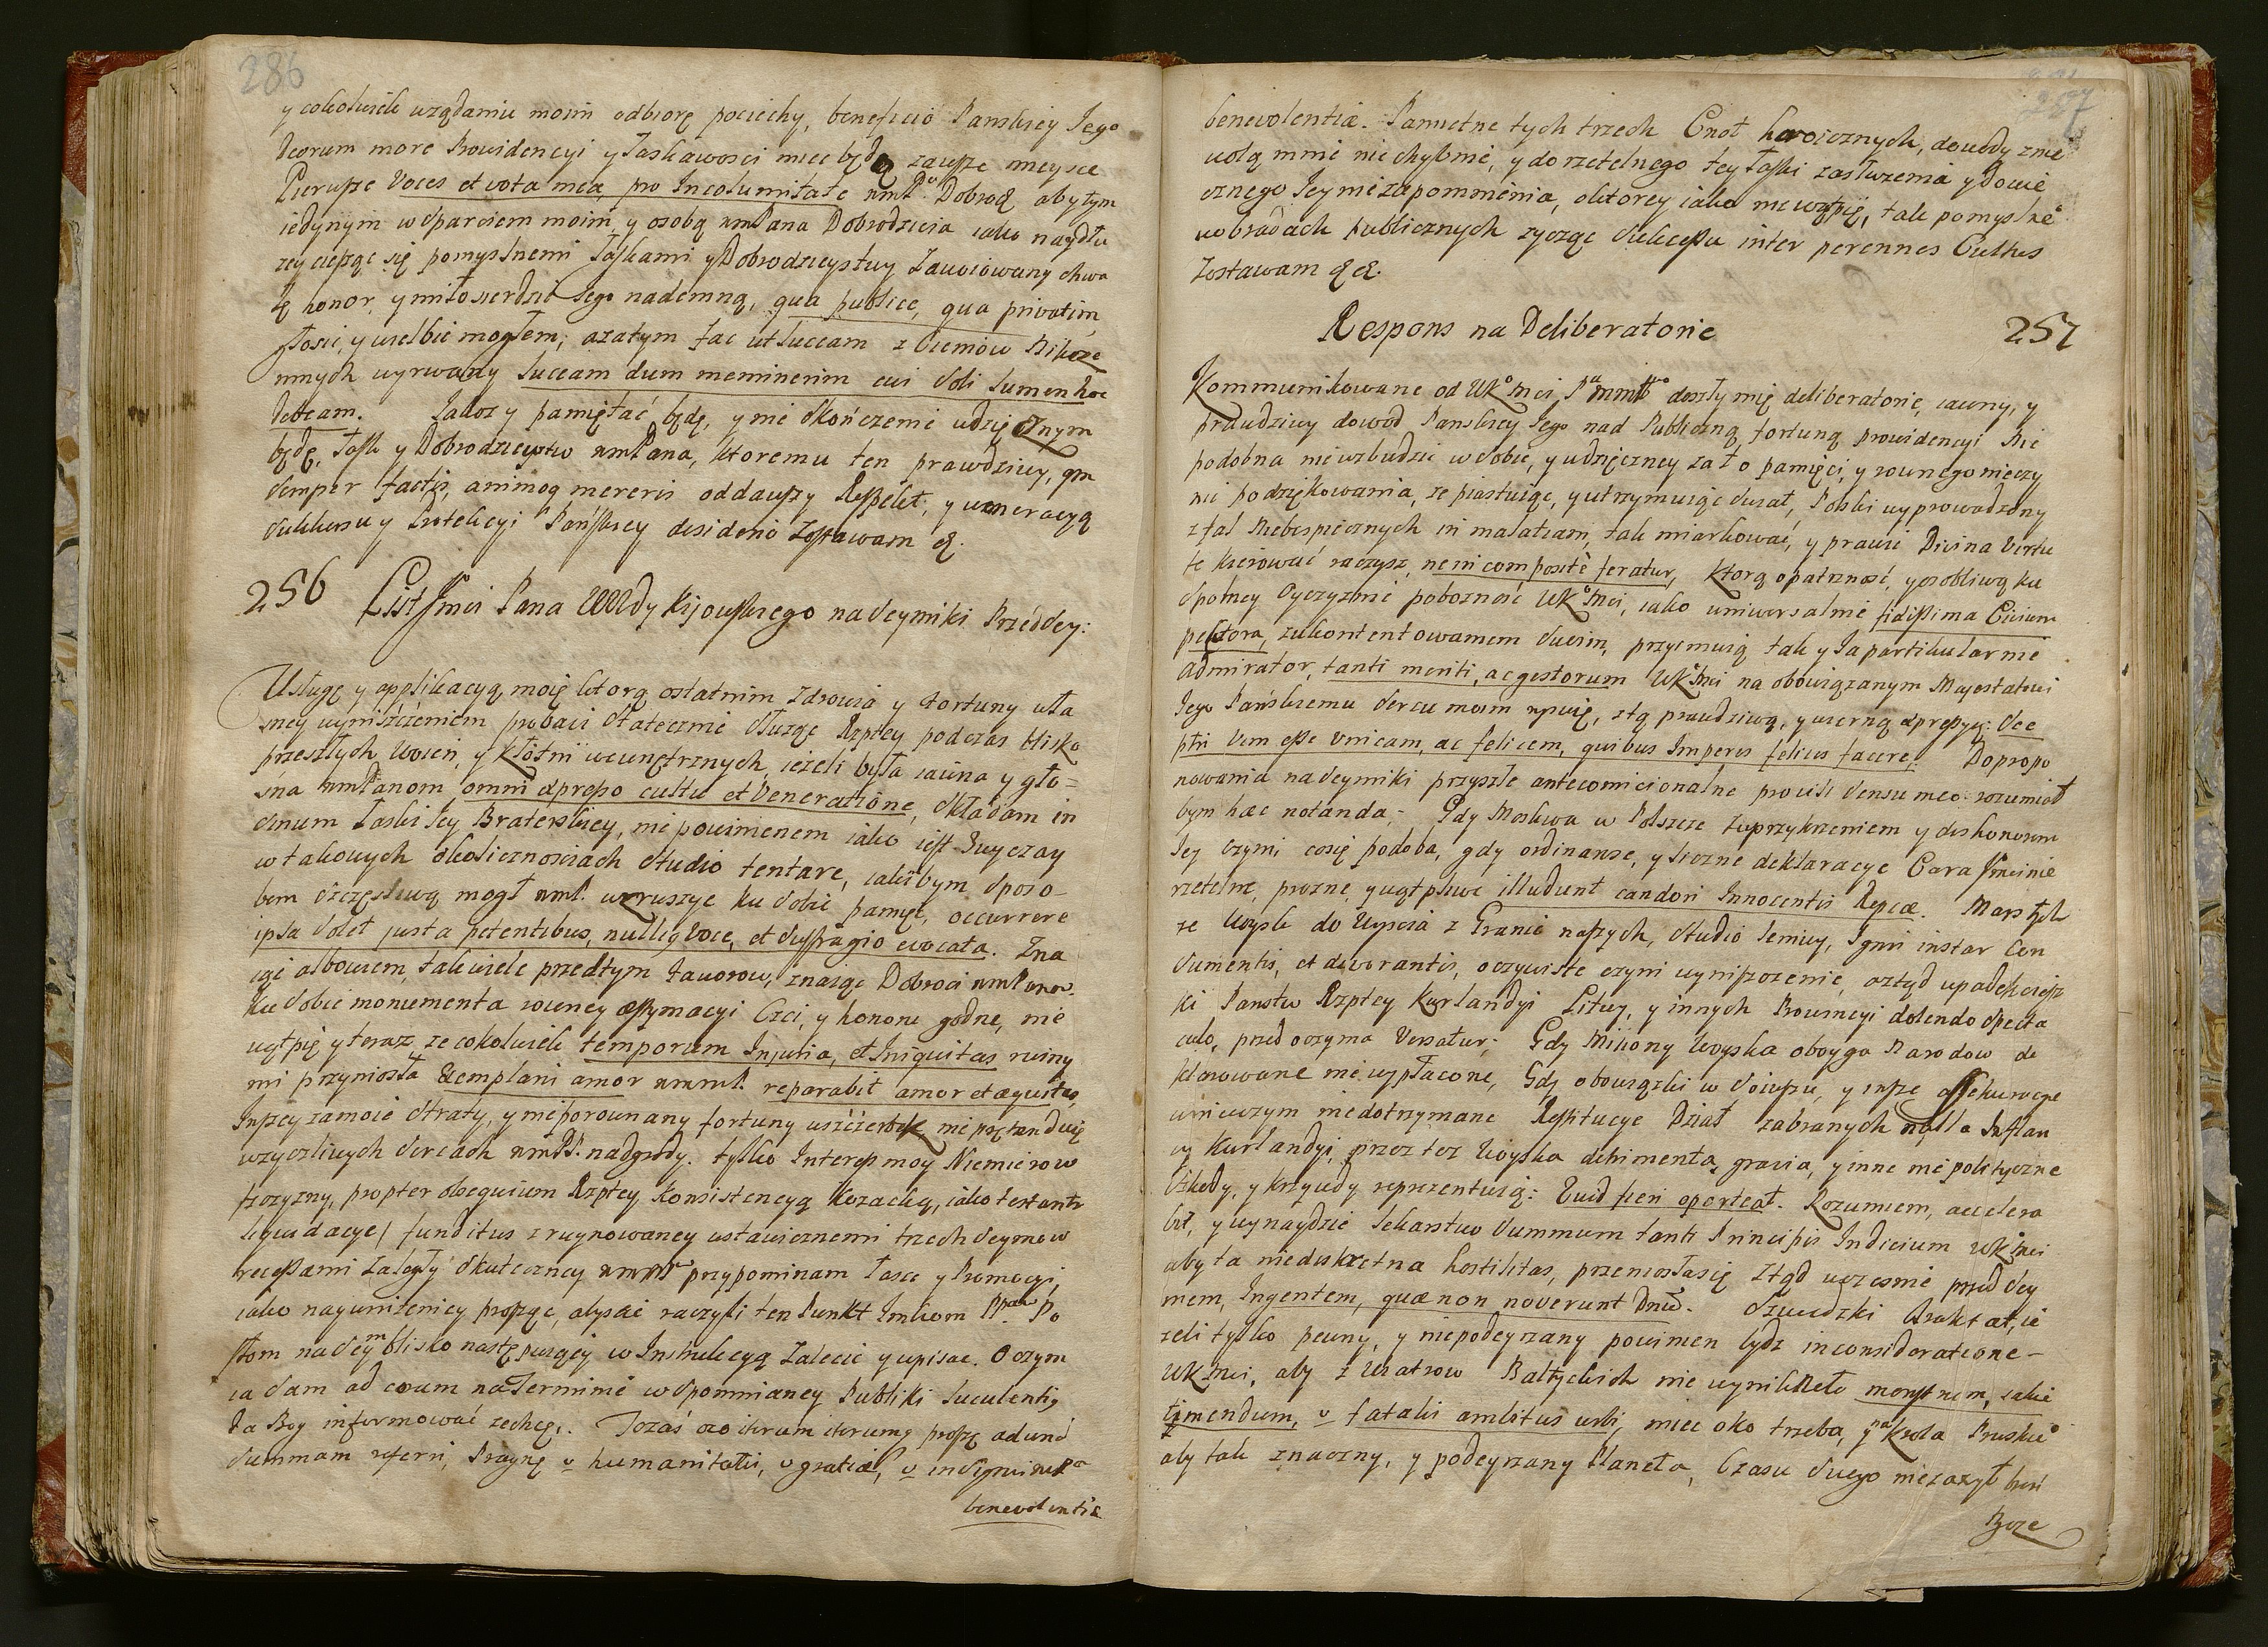 286
y cokolwiek uządaniu moim odbiorę pociechy, beneficio Panskiey Jego
Deorum more Prowidencyi y Łaskawosci miec będę zawsze mieysce
Pierwsze Voces et vota mea pro Incolumitate Dobroą abytym
iedynym wsparciem moim, y osobą wmPana Dobrodzieia iako naydłu
zey ciesząc się pomyslnemi Łaskami y Dobrodzieystwy Zawoiowany chwa
łę honor, y miłosierdzie Jego nademną, qua publice, qua privatim,
głosic, y wielbic mogłem; azatym fac ut luceam z Cieniow Nikcze
mnych wyrwany luceam dum meminerim cui soli lumen hoc
debeam. Jakoz y pamiętać będę, y nie skończenie wdzięcznym
będę, Łask y Dobrodzieystw wmPana, ktoremu ten prawdziwy, qm
semper factis, animoq mereris oddawszy Respekt, y weneracyą
sukkursu y Protekcyi Pańskiey desiderio Zostawam &.
256 List Jmci Pana Wdy Kijowskiego na Seymiki Przedsey:
Usługę y applikacyą moię ktorą ostatnim Zdrowia y Fortuny wła
sney wyniszczeniem probaui statecznie służąc Rzptey podczas blisko
przeszłych Woien, y Kłotni wewnętrznych, ieżeli była iawna y gło=
sna wmPanom omni expresso cultu et Veneratione, składam in
sinum Łaski Jey Braterskiey, nie powinienem iako iest Zwyczay
w takowych okolicznosciach studio tentare, iakibym sposo
bem szczęsliwą mogł wmP. wzruszyc ku sobie pamięc, occurrere
ipsa solet justa petentibus, nulliq Voce, et suffragio evocata. Zna
iąc albowiem, tak wiele przedtym Faworow, znaiąc Dobroci wmPanow
ku sobie monumenta rowney estymacyi Czci, y honoru godne, nie
wątpię y teraz, ze cokolwiek temporum Injuria, et Iniquitas ruiny
mi przyniosła Exemplari amor wmmP. reparabit amor et aequitas,
Inszey zamoie straty, y nieporownany fortuny uszczerbek nie prętenduię
wzyczliwych sercach wmPP. nadgrody. tylko Interess moy Niemierow
szczyzny, propter obsequium Rzptey, Konsistencyą Kozacką, iako testantr
liquidacye, funditus zruynowaney ustawicznemi trzech Seymow
recessami Zaległy skuteczney przypominam Łasce y Promocyi,
iako nayuniżeniey proszę, abyscie raczyli ten Punkt Imciom PPanow Po
słom na Seym blisko następuiący w Instrukcyą Zalecic y wpisac. O czym
ia sam ad corum na Terminie wspomnianey Publiki luculentiq
Da Bog informować zechcę. Tozaś oco iterum iterumq proszę ad unā
summam referri, Pragnę u humanitatii, u gratiae, u insigni
benevolentiæ
257
benevolentiæ. Pamiętne tych trzech Cnot heroicznych, dowody znie
wolą mnie niechybnie, y do rzetelnego tey Łaski zasłuzenia y dowie
cznego Jey niezapomnienia, o ktorey iako niewątpię, tak pomyslneo
w obradach publicznych zycząc sukcessu inter perennes Cultus
Zostawam &&.
Respons na Deliberatorie 257
Kommunikowane od WKMci, doszły mię deliberatorie, iawny, y
prawdziwy dowod Panskiey Jego nad Publiczną fortuną prowidencyi Nie
podobna nie wzbudzic w sobie, y wdzięczney za to pamięci, y rownego nieczy
nić podziękowania, ze piastuiąc, y utrzymuiąc swiat, Polski wyprowadzony
z fal Niebespiecznych in malatiam, tak miarkowac, y prawie Divina Virtu
te kierowac raczysz, ne in composite feratur, Ktorą opatrznosć, y osobliwą ku
spolney Oyczyznie poboznosć WKMci, iako uniwersalnie fidissima Civium
pectora, zukontentowaniem swoim, przyimuią tak y Ia partikularnie
admirator, tanti meriti, ac gestorum WKMci na obowiązanym Maiestatowi
Jego Pańskiemu sercu moim rysuię, z tą prawdziwą, y wierną expressyą: Sce
ptri Vim esse Vnicam, ac felicem, quibus Imperes felices facere. Do propo
nowania na Seymiki przyszłe antecomicionalne prowiść sensu meo rozumiał
bym hæc notanda. Gdy Moskwa w Polszcze Zuprzykrzeniem y dishonorem
Jey czyni cosię podoba, gdy ordinanse, y liczne deklaracye Cara Jmci nie
rzetelne, prozne, y wątpliwe illudunt candori Innocentis Rpcæ. Marsz tych
ze Woysk do Wyiscia z Granic naszych, studio leniwy, Igni instar Con
sumentis, et devorantis, oczywiste czyni wyniszczenie, aztąd upadek cięsz
ki Panstw Rzptey Kurlandyi Litwy, y innych Prowincyi dolendo specta
culo, przed oczyma Versatur; Gdy Miliony Woyska oboyga Narodow de
klarowane nie wypłacone, Gdy obowiązki w soiuszu, y insze assekuracye
wniczym niedotrzymane Restitucye Dział zabranych Inflan
cy Kurlandyi, przez tez Woyska detrimenta, gravia, y inne nie polityczne
szkody, y krzywdy reprezentuią: Quid fieri oporteat. Rozumiem, accelera
bit, y wynaydzie lekarstwo summum tanti Principis Indicium WKMci
aby ta niediskretna hostilitas, przeniosła się ztąd wczesnie przed Sey
mem, Ingentem, quæ non noverunt Dnū. Szwedzki Traktat, ie
zeli tylko pewny, y niepodeyrzany powinien bydz in consideratione
WKMci, aby z Wiatrow Baltyckich nie wyniknęło monstrum, iakie
timendum, u fatalis ambitus urbi, miec oko trzeba, y na Krola Pruskieo
aby tak znaczny, y podeyrzany Planeta, Czasu swego niezazył broń
Boze